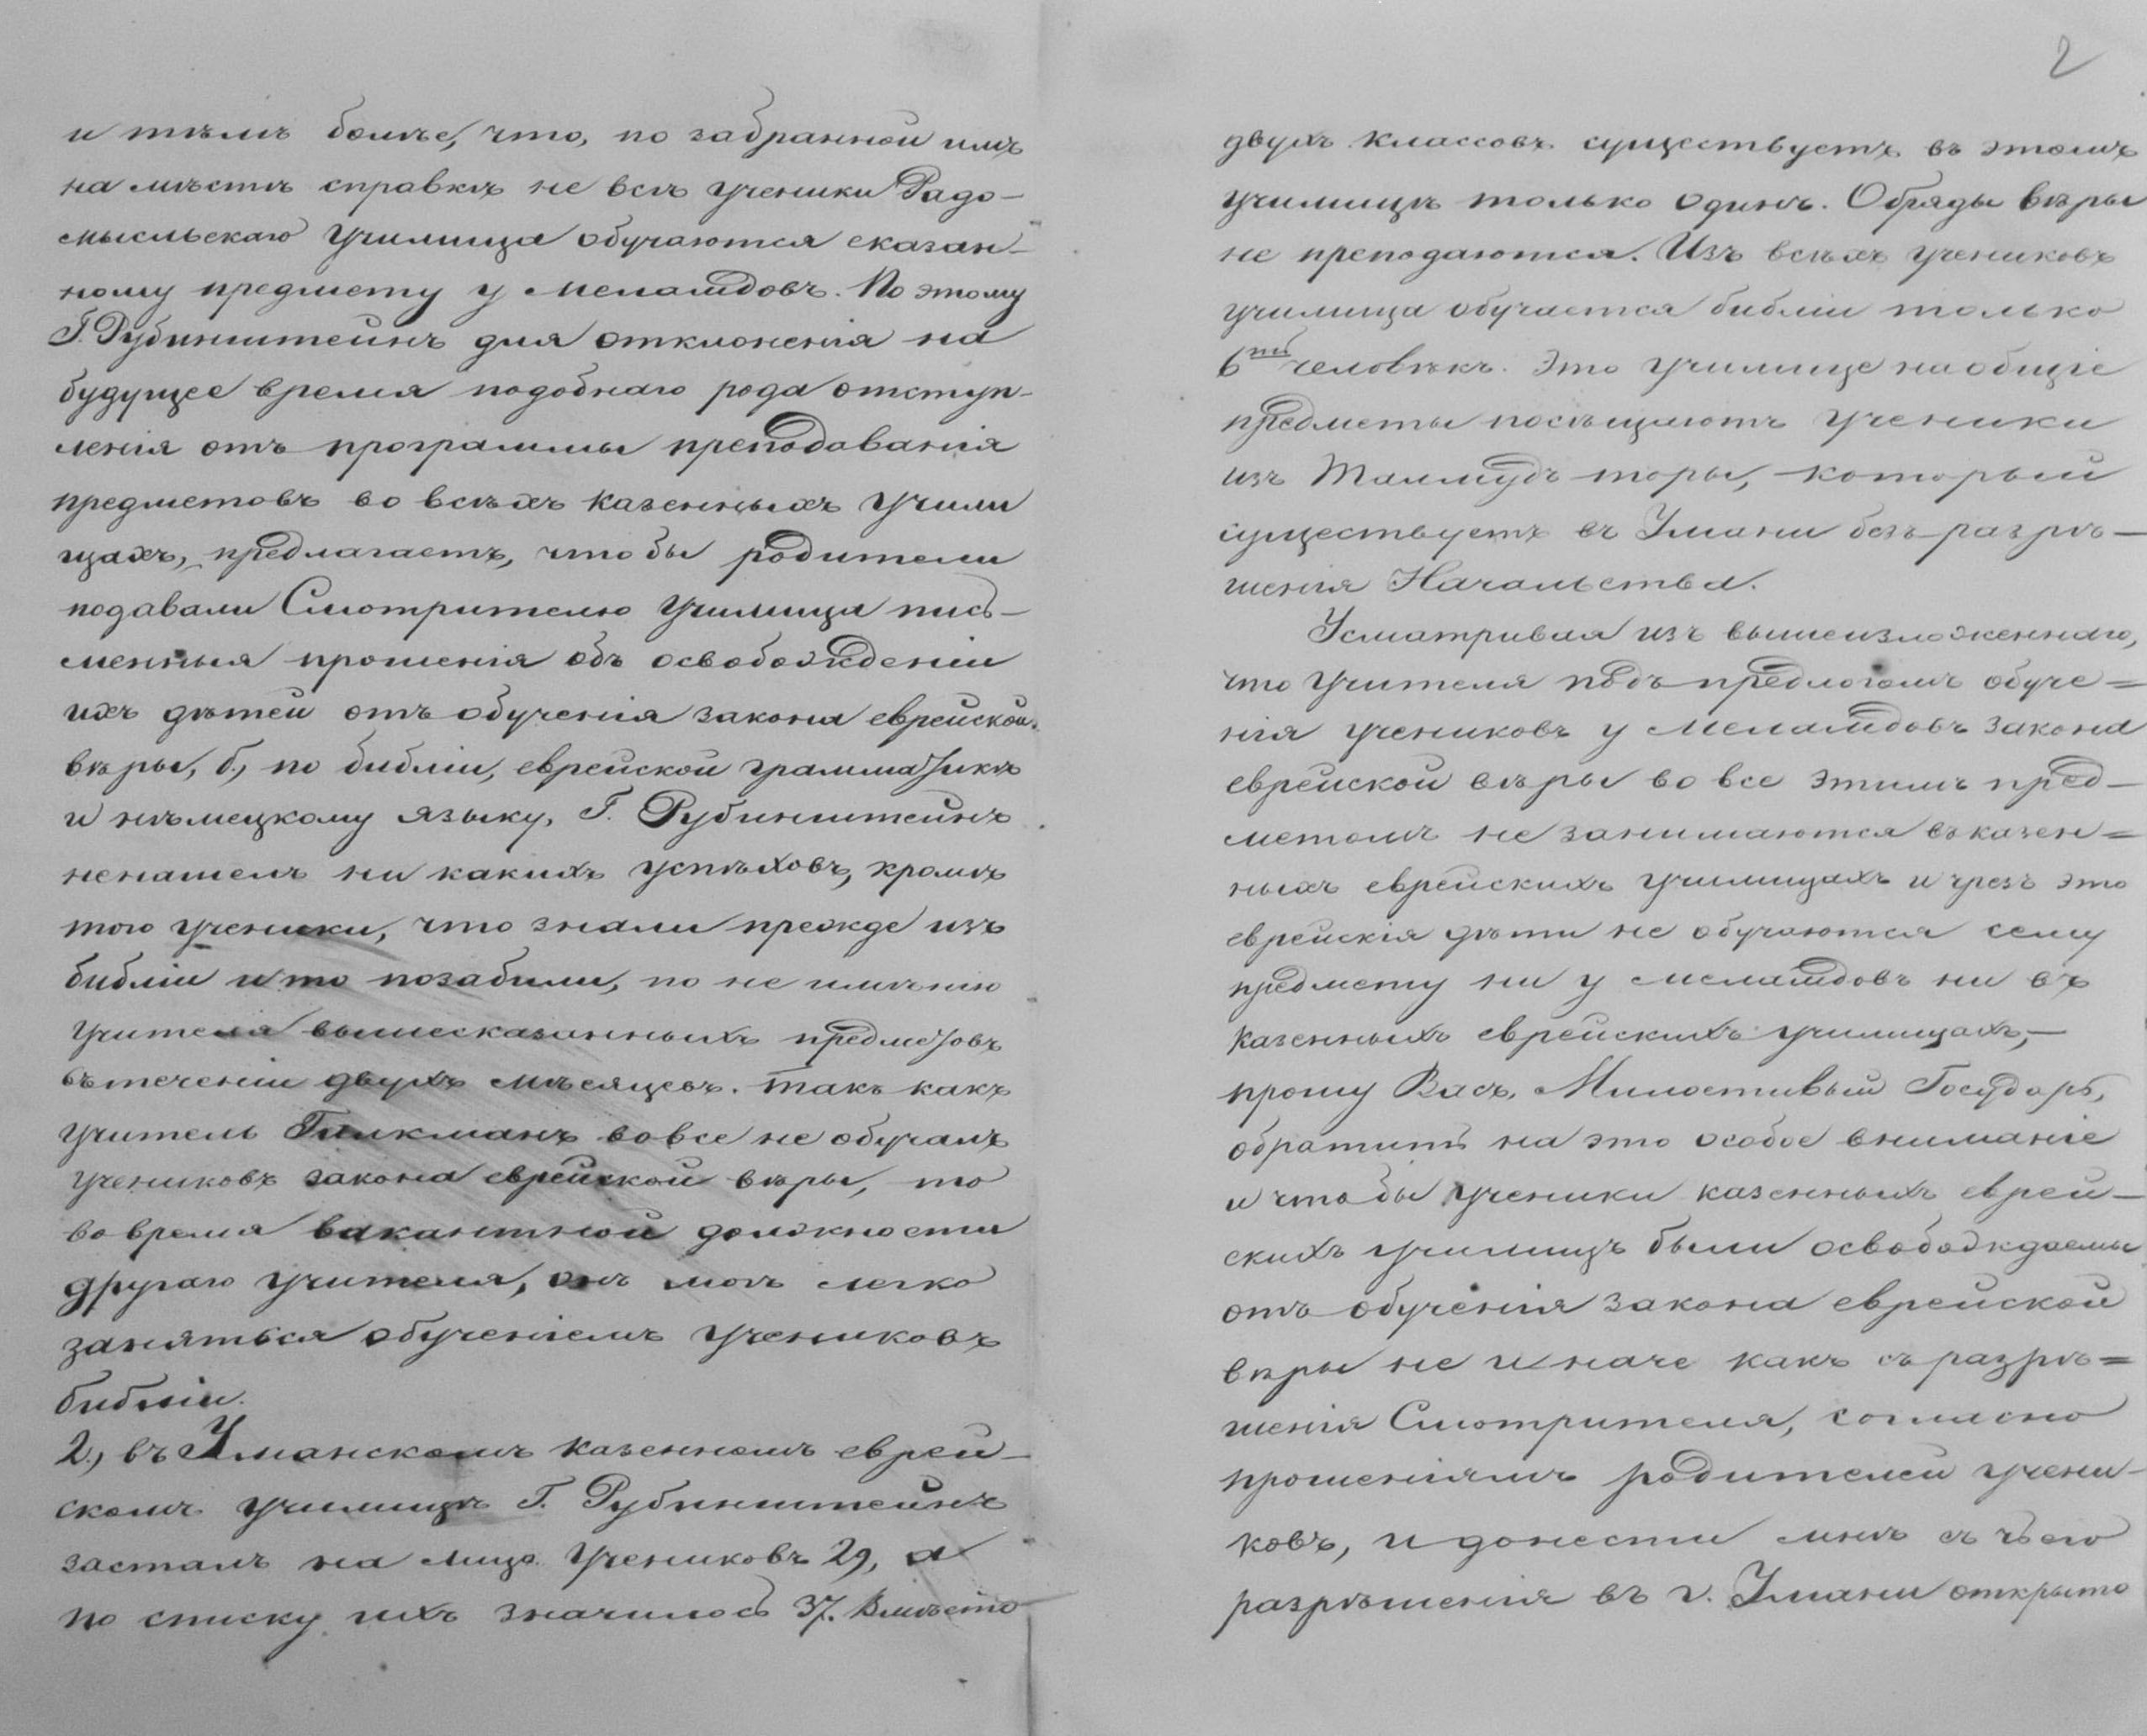 и тѣмъ болѣе, что, по забранной имъ
на мѣстѣ справкѣ не всѣ ученики Радо-
мысльскаго Училища обучаются сказан-
ному предмету у Меламдовъ. По этому
Г. Рубинштейнъ для отклоненія на
будущее время подобнаго рода отступ-
ленія отъ программы преподаванія
предметовъ во всѣхъ казенныхъ Учили
щахъ, предлагаетъ, что бы родители
подавали Смотрителю Училища пись-
менныя прошенія объ освобожденіи
ихъ дѣтей отъ обученія закона еврейской
вѣры, б, по библіи, еврейской грамматикѣ
и нѣмецкому языку, Г. Рубинштейнъ
ненашелъ ни какихъ успѣховъ, кромѣ
того ученики, что знали прежде изъ
библіи и то позабыли, по не имѣнію
Учителя вышесказанныхъ предметовъ
въ теченіи двухъ мѣсяцевъ. Такъ какъ
Учитель Гилкманъ вовсе не обучалъ
учениковъ закона еврейской вѣры, то
во время вакантной должности
другаго Учителя, онъ могъ легко
заняться обученіемъ Учениковъ
библіи.
2, въ Уманскомъ казенномъ еврей-
скомъ училищѣ Г. Рубинштейнъ
засталъ на лицо Учениковъ 29, а
по списку ихъ значилось 37. Вмѣсто
2
двухъ классовъ существуетъ въ этомъ
училищѣ только одинъ. Обряды вѣры
не преподаются. Изъ всѣхъ учениковъ
училища обучается библіи только
6ть человѣкъ. Это Училище на общіе
предметы посѣщаютъ Ученики
изъ Талмудъ торы, который
существуетъ въ Умани безъ разрѣ-
шенія Начальства.
Усматривая изъ вышеизложеннаго,
что Учителя подъ предлогомъ обуче=
нія учениковъ у Меламдовъ закона
еврейской вѣры во все этимъ пред-
метомъ не занимаются въ казен=
ныхъ еврейскихъ училищахъ и чрезъ это
еврейскія дѣти не обучаются сему
предмету ни у меламдовъ ни въ
казенныхъ еврейскихъ училищахъ,-
прошу Васъ, Милостивый Государь,
обратить на это особое вниманіе
и что бы ученики казенныхъ еврей-
скихъ училищъ были освобождаемы
отъ обученія закона еврейской
вѣры не иначе какъ съ разрѣ=
шенія Смотрителя, согласно
прошеніямъ родителей учени-
ковъ, и донести мнѣ съ чьего
разрѣшенія въ г. Умани открыто